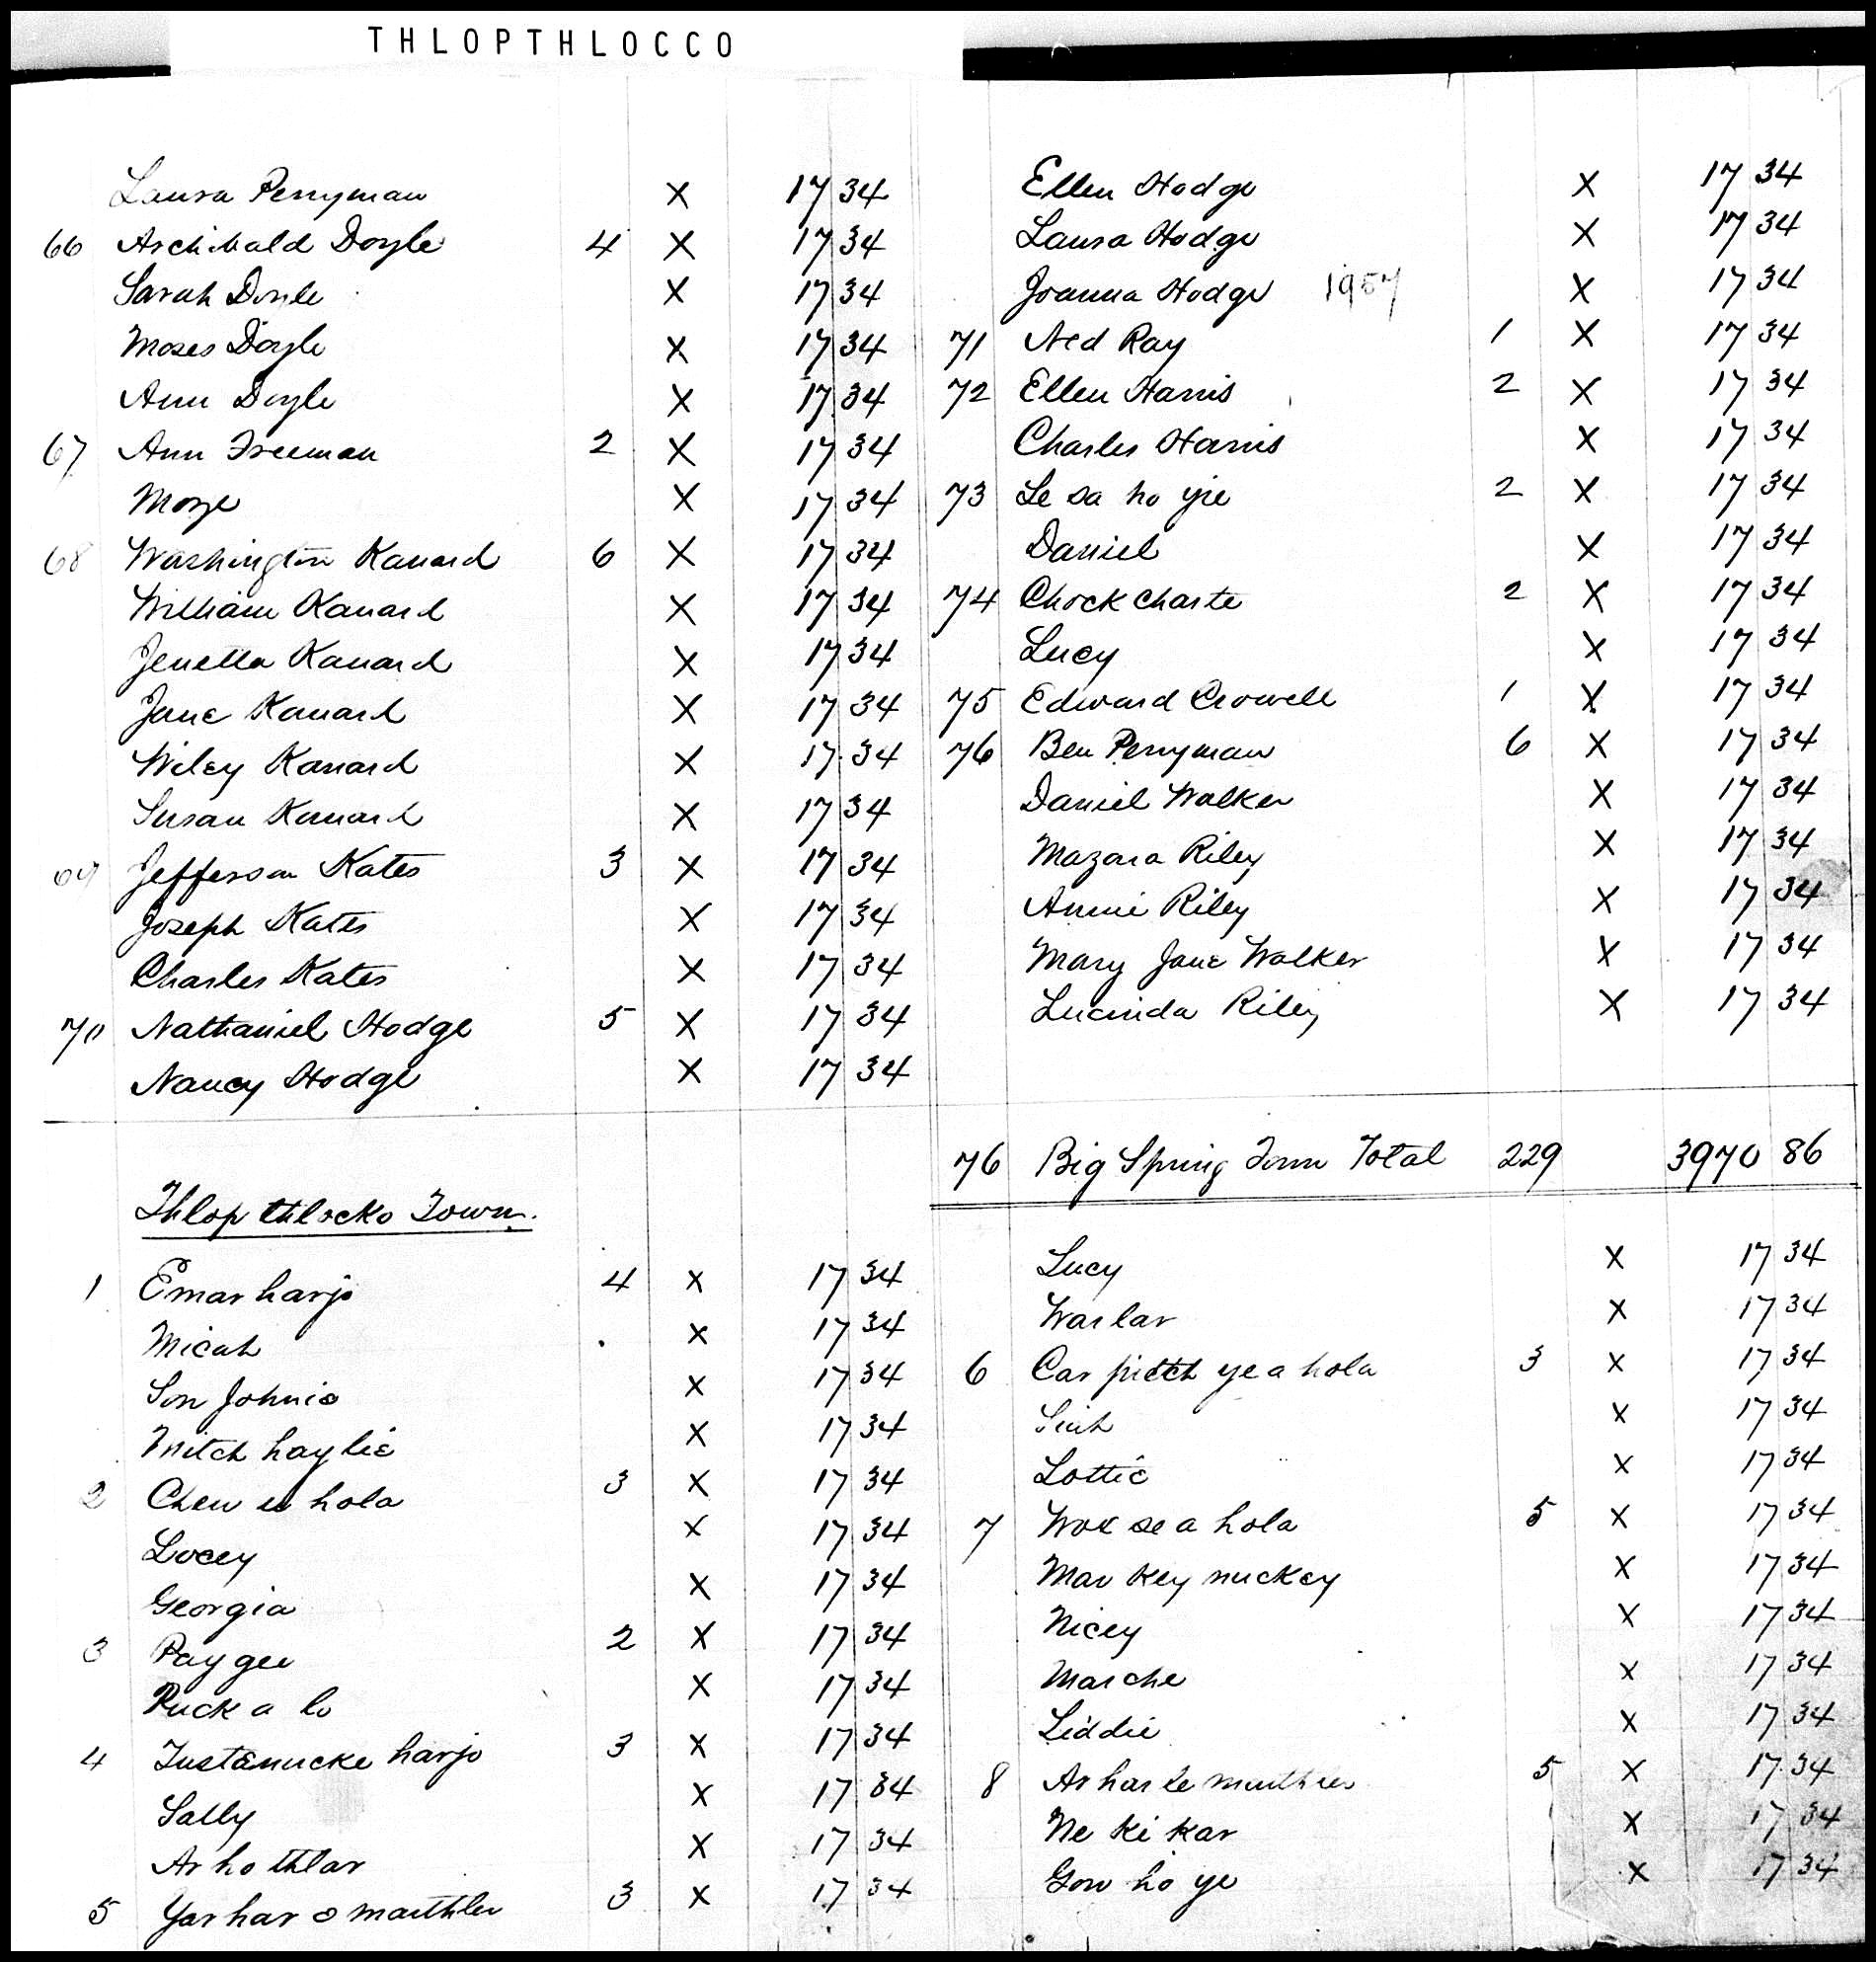 THLOPTHLOCCO
Laura Perryman X 17 34
66 Archibald Doyle 4 X 17 34
Sarah Doyle X 17 34
Moses Doyle X 17 34
Ann Doyle X 17 34
67 Ann Freeman 2 X 17 34
Moze X 17 34
68 Washington Kanard 6 X 17 34
William Kanard X 17 34
Jenetta Kanard X 17 34
Jane Kanard X 17 34
Wiley Kanard X 17 34
Susan Kanard X 17 34
69 Jefferson Kates 3 X 17 34
Joseph Kates X 17 34
Charles Kates X 17 34
70 Nathaniel Hodge 5 X 17 34
Nancy Hodge X 17 34
Ellen Hodge X 17 34
Laura Hodge X 17 34
Joanna Hodge 1957 X 17 34
71 Ned Ray 1 X 17 34
72 Ellen Harris 2 X 17 34
Charles Harris X 17 34
73 Le sa ho yie 2 X 17 34
Daniel X 17 34
74 Chock charte 2 X 17 34
Lucy X 17 34
75 Edward Crowell 1 X 17 34
76 Ben Perryman 6 X 17 34
Daniel Walker X 17 34
Mazara Riley X 17 34
Annie Riley X 17 34
Mary Jane Walker X 17 34
Lucinda Riley X 17 34
76 Big Spring Town Total 229 3970 86
Thlop thlocko Town.
1 Emar harjo 4 X 17 34
Micah X 17 34
Son Johnie X 17 34
Mitch hay lie X 17 34
2 Chew e hola 3 X 17 34
Locey X 17 34
Georgia X 17 34
3 Pay gee 2 X 17 34
Puck a lo X 17 34
4 Tustenucke harjo 3 X 17 34
Sally X 17 34
Ar ho thlar X 17 34
5 Yar har o marthler 3 X 17 34
Lucy X 17 34
War lar X 17 34
6 Car pitch ye a hola 3 X 17 34
Siah X 17 34
Lottie X 17 34
7 Wok se a hola 5 X 17 34
Mar key nuckey X 17 34
Nicey X 17 34
Marche X 17 34
Liddie X 17 34
8 Ar har le 5 X 17 34
Ne ki kar X 17 34
Gow ho ye X 17 34